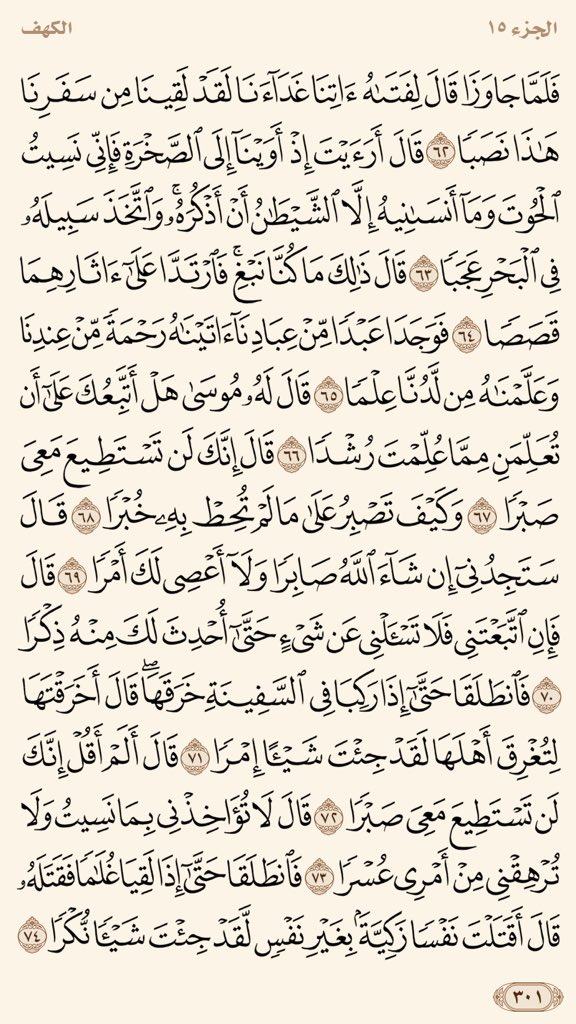 الجزء ١٥
الكهف
فَلَمَّا جَاوَزَا قَالَ لِفَتَىٰهُ ءَاتِنَا غَدَآءَنَا لَقَدۡ لَقِينَا مِن سَفَرِنَا
هَٰذَا نَصَبٗا ٦٢ قَالَ أَرَءَيۡتَ إِذۡ أَوَيۡنَآ إِلَى ٱلصَّخۡرَةِ فَإِنِّي نَسِيتُ
ٱلۡحُوتَ وَمَآ أَنسَىٰنِيهُ إِلَّا ٱلشَّيۡطَٰنُ أَنۡ أَذۡكُرَهُۥۚ وَٱتَّخَذَ سَبِيلَهُۥ
فِي ٱلۡبَحۡرِ عَجَبٗا ٦٣ قَالَ ذَٰلِكَ مَا كُنَّا نَبۡغِۚ فَٱرۡتَدَّا عَلَىٰٓ ءَاثَارِهِمَا
قَصَصٗا ٦٤ فَوَجَدَا عَبۡدٗا مِّنۡ عِبَادِنَآ ءَاتَيۡنَٰهُ رَحۡمَةٗ مِّنۡ عِندِنَا
وَعَلَّمۡنَٰهُ مِن لَّدُنَّا عِلۡمٗا ٦٥ قَالَ لَهُۥ مُوسَىٰ هَلۡ أَتَّبِعُكَ عَلَىٰٓ أَن
تُعَلِّمَنِ مِمَّا عُلِّمۡتَ رُشۡدٗا ٦٦ قَالَ إِنَّكَ لَن تَسۡتَطِيعَ مَعِيَ
صَبۡرٗا ٦٧ وَكَيۡفَ تَصۡبِرُ عَلَىٰ مَا لَمۡ تُحِطۡ بِهِۦ خُبۡرٗا ٦٨ قَالَ
سَتَجِدُنِيٓ إِن شَآءَ ٱللَّهُ صَابِرٗا وَلَآ أَعۡصِي لَكَ أَمۡرٗا ٦٩ قَالَ
فَإِنِ ٱتَّبَعۡتَنِي فَلَا تَسۡـَٔلۡنِي عَن شَيۡءٍ حَتَّىٰٓ أُحۡدِثَ لَكَ مِنۡهُ ذِكۡرٗا
٧٠ فَٱنطَلَقَا حَتَّىٰٓ إِذَا رَكِبَا فِي ٱلسَّفِينَةِ خَرَقَهَاۖ قَالَ أَخَرَقۡتَهَا
لِتُغۡرِقَ أَهۡلَهَا لَقَدۡ جِئۡتَ شَيۡـًٔا إِمۡرٗا ٧١ قَالَ أَلَمۡ أَقُلۡ إِنَّكَ
لَن تَسۡتَطِيعَ مَعِيَ صَبۡرٗا ٧٢ قَالَ لَا تُؤَاخِذۡنِي بِمَا نَسِيتُ وَلَا
تُرۡهِقۡنِي مِنۡ أَمۡرِي عُسۡرٗا ٧٣ فَٱنطَلَقَا حَتَّىٰٓ إِذَا لَقِيَا غُلَٰمٗا فَقَتَلَهُۥ
قَالَ أَقَتَلۡتَ نَفۡسٗا زَكِيَّةَۢ بِغَيۡرِ نَفۡسٖ لَّقَدۡ جِئۡتَ شَيۡـٔٗا نُّكۡرٗا ٧٤
٣٠١